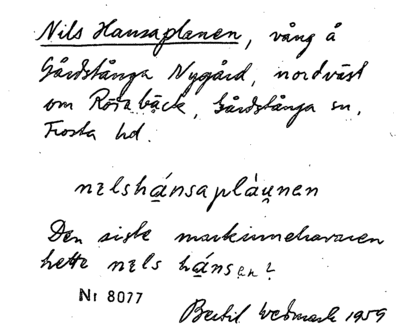 Nils Hansaplanen, vång å
Gårdstånga Nygård, nordväst
om Rösabäck, Gårdstånga sn,
Frosta hd.
nɪlshánsaplàu̯nen
Den siste markinnehavaren
hette nɪls hánsen?
Nr 8077
Bertil Wedmark 1959